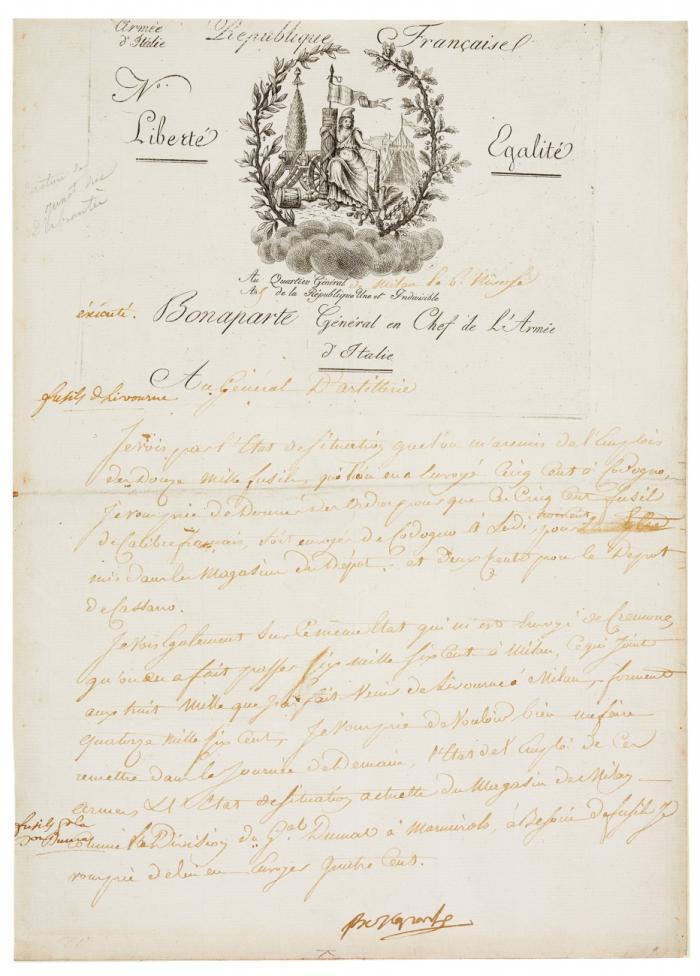 Armée
d'Italie
République Française
N.o
Liberté
Egalité
Au Quartier Général de Milan le 6 Nivose
An 5 de la République Une et Indivisible
éxécuté.
Bonaparte Général en Chef de L'Armée
d'Italie
Au Général D'artillerie
fusils de Livourne
Je vois par l'Etat de Situation que l'on m'a remis de l'Emplois
des Douze mille fusils, que l'on en a Envoyé Cinq Cent à Codogno,
Je vous prie de Donner des Ordres pour que Ces Cinq Cent fusil
de Calibre français, soit envoyés de Codogno à Lodi, pour
mis dans les Magasins du Dépot, et deux Cents pour le Dépot
de Cassano.
Je vois Egalement Sur le même Etat qui m'est Envoyé de Cremone,
qu'on en a fait passer Six mille Six Cent à Milan, Ce qui Joint
aux huit Mille que J'ai fait Venir de Livourne à Milan, forment
quatorze mille Six Cent, Je Vous prie de Vouloir bien me faire
remettre dans la Journée de Demain, l'Etat de l'Emploi de Ces
armes, Et l'Etat de Situation actuelle du Magasin de Milan
fusils
Comme la Division du G.al Dumas à Marmirolo, à Besoin de fusils Je
vous prie de lui en Envoyer quatre Cent.
Bonaparte